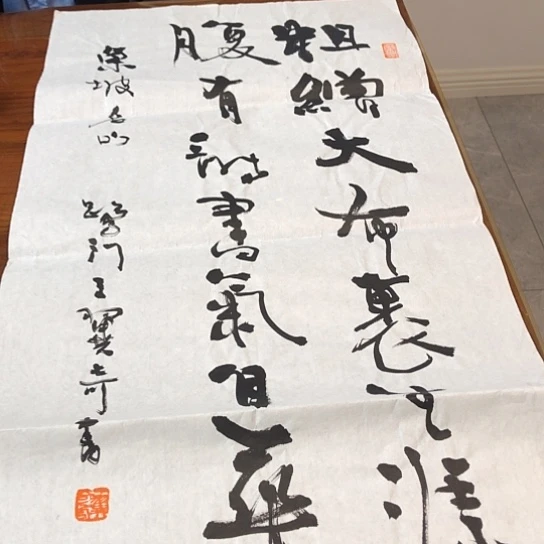 粗繒大布裹生涯
腹有詩書氣自華
東坡名句 鷺門王翼奇書